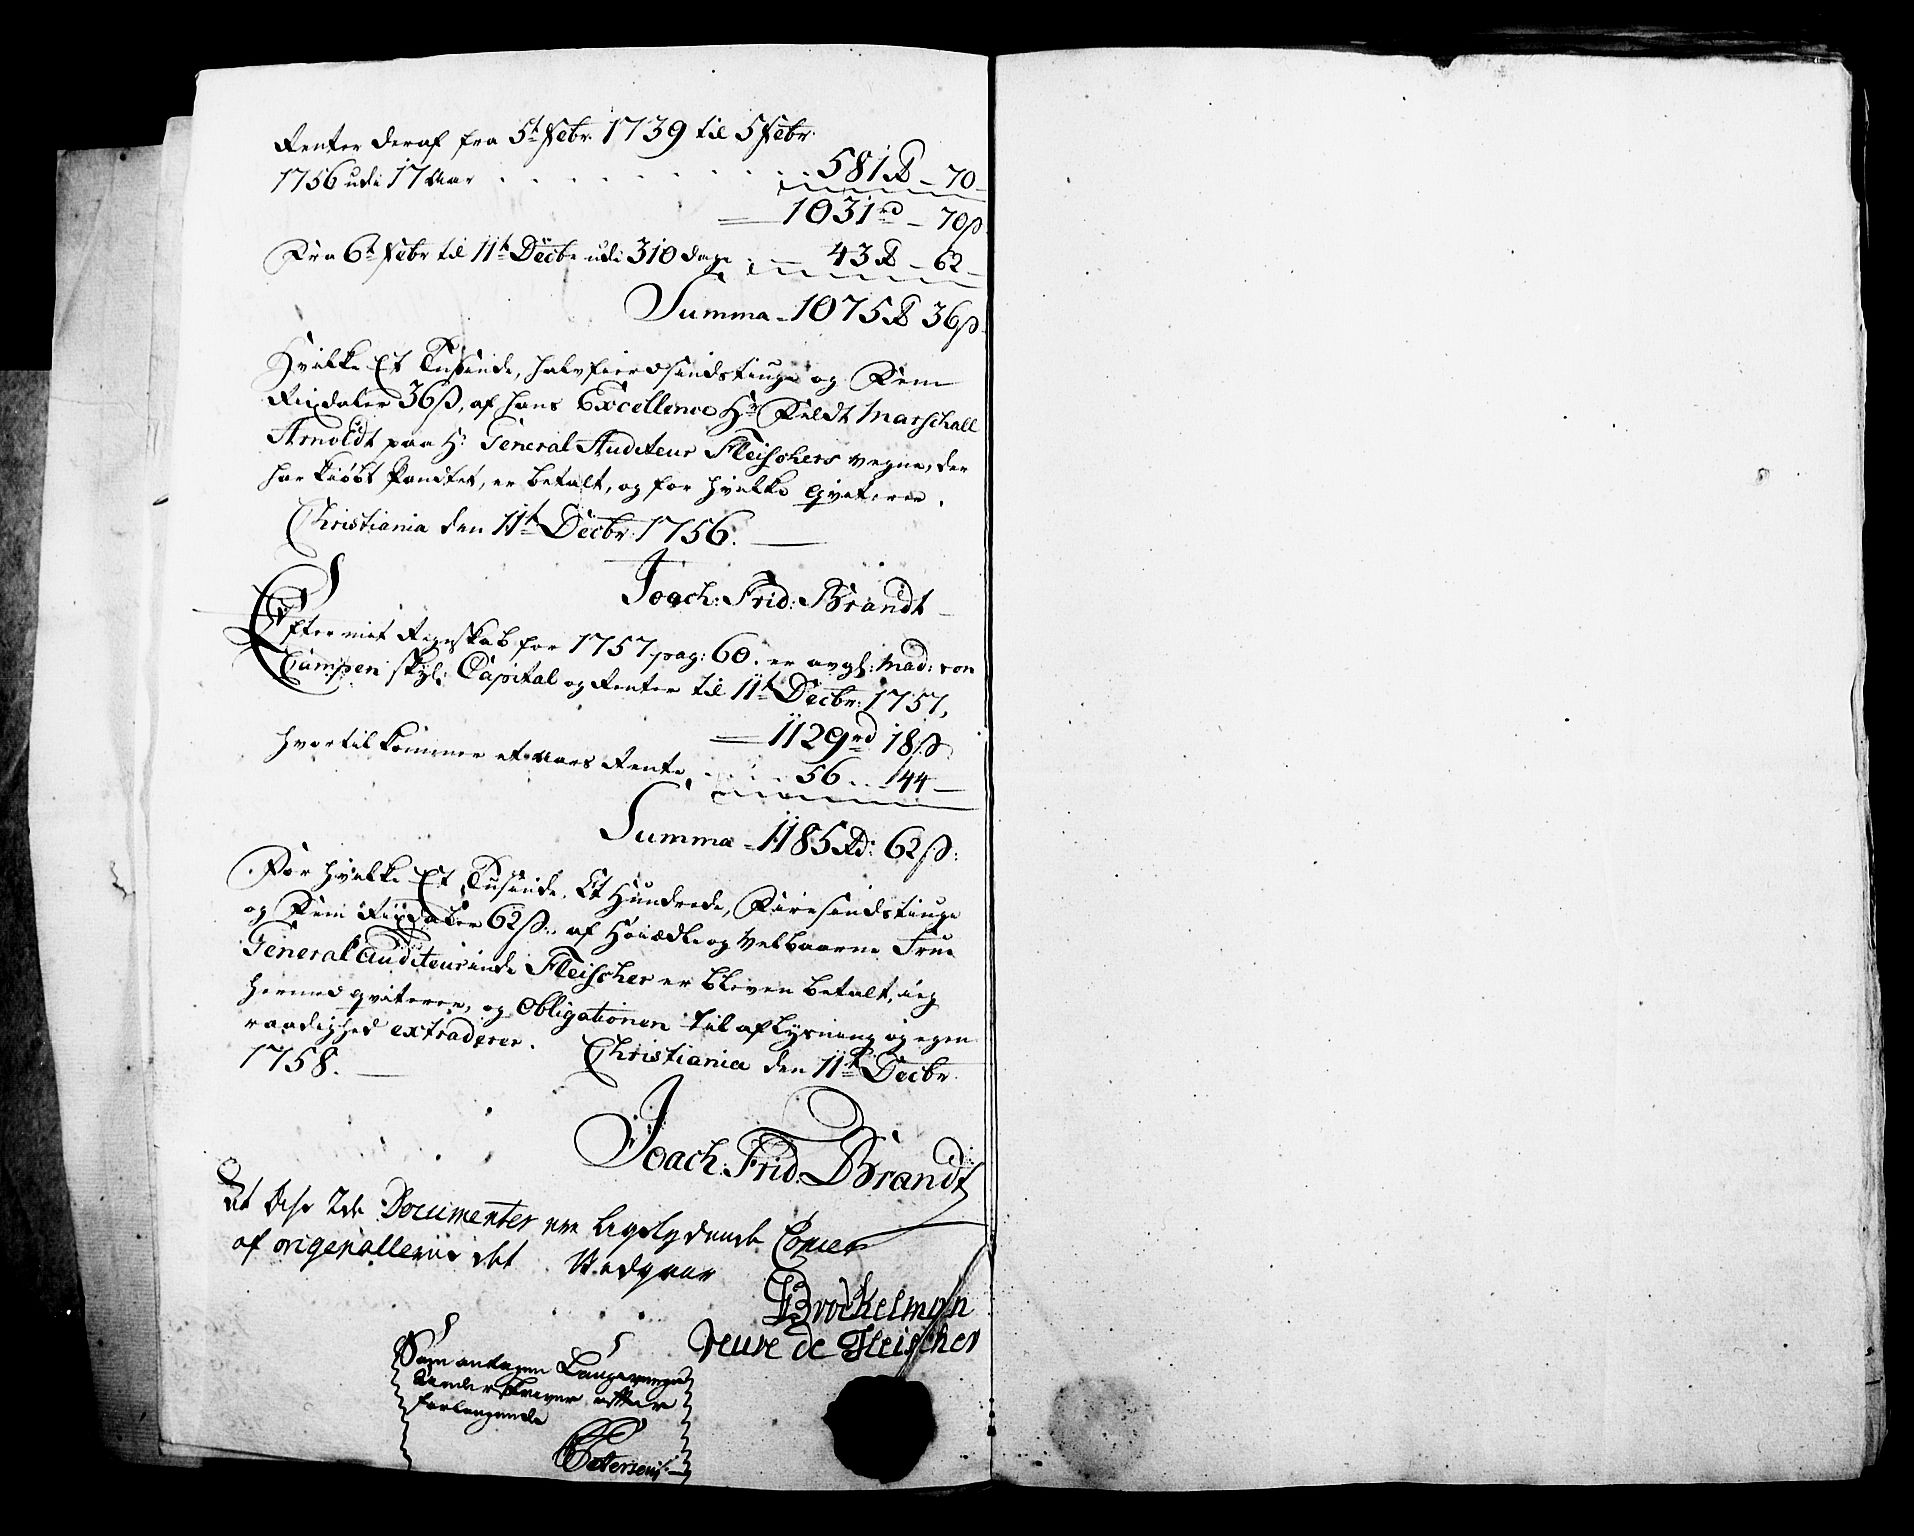 Renter deraf fra 5t Febr. 1739 til 5 Febr:
1756 udi 17 Aar . . . . . . . . . 581 Rd – 70 –
1031 rd – 70 ß
Fra 6t Febr til 11t Decbr udi 310 dage . – 43 Rd – 62 –
Summa – 1075 Rd 36 ß.
Hvilke Et Tusinde, halvfierdsindstiuge og Fem
Rixdaler 36 ß, af hans Excellence Hr. Feldt Marschall
Arnoldt paa H: General Auditeur Fleischers vegne, der
har kiøbt Pandtet, er betalt, og for hvilke qviterer.
Christiania den 11t Decbr: 1756.
Joach: Frid: Brandt
Efter mit Regnskab for 1757 pag: 60. er avgl: Mad: von
Campen skyl: Capital og Renter til 11t Decbr: 1757,
1129 rd 18 ß.
hvortil kommer et aars Rente . . . 56 . . 144 –
Summa – 1185 Rd: 62 ß:
For hvilke Et Tusinde, Et Hundrede, Firesindstiuge
og Fem Rixdaler 62 ß. af Høiædle og Velbaarne Frue
General Auditeurinde Fleischer er bleven betalt, ieg
hermed qviterer, og Obligationen til aflysning og egen
raadighed extraderer. Christiania den 11t Decbr.
1758.
Joach: Frid: Brandt
At disse 2de Documenter ere ligelydende Copier
af origenallerne det
Brockelman
veuve de Fleischer
Som antagen Laugverge
underskriver efter
forlangende
Petersen